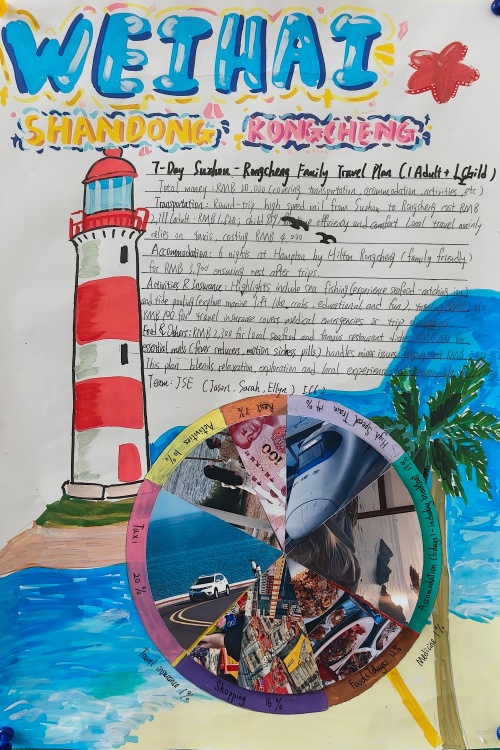 WEIHAI
SHANDONG RONGCHENG
7-Day Suzhou - Rongcheng Family Travel Plan (1 Adult + 1 Child)
Total money: RMB 20,000 (covering transportation, accommodation, activities, etc)
Transportation: Round-trip high speed rail from Suzhou to Rongcheng cost RMB
efficiency and comfort Local travel mainly
on taxis, costing RMB 4,000
Accommodation: 6 nights at Hampton by Hilton Rongcheng (family friendly)
for RMB 3,900 ensuring rest after trips.
Activities & Insurance: Highlights include sea fishing (experience seafood-catching joy)
and tide pooling (explore marine life like crabs, educational and fun)
RMB 100 for travel insurance covers medical emergencies or trip
Food & Others: RMB 2,300 for local seafood and famous restaurant
essential meds (fever reducers, motion sickness pills) handles minor issues
This plan blends relaxation, exploration and local experience
Team: JSE (Jason, Sarah, Ellyn)
High Speed Train 14%
Accomodation (6 days) - including breakfast
Medicine 1%
Food (7 days) 12%
Shopping 16%
Travel insurance 1%
Taxi 20%
Activities 10%
Rest 7%
100